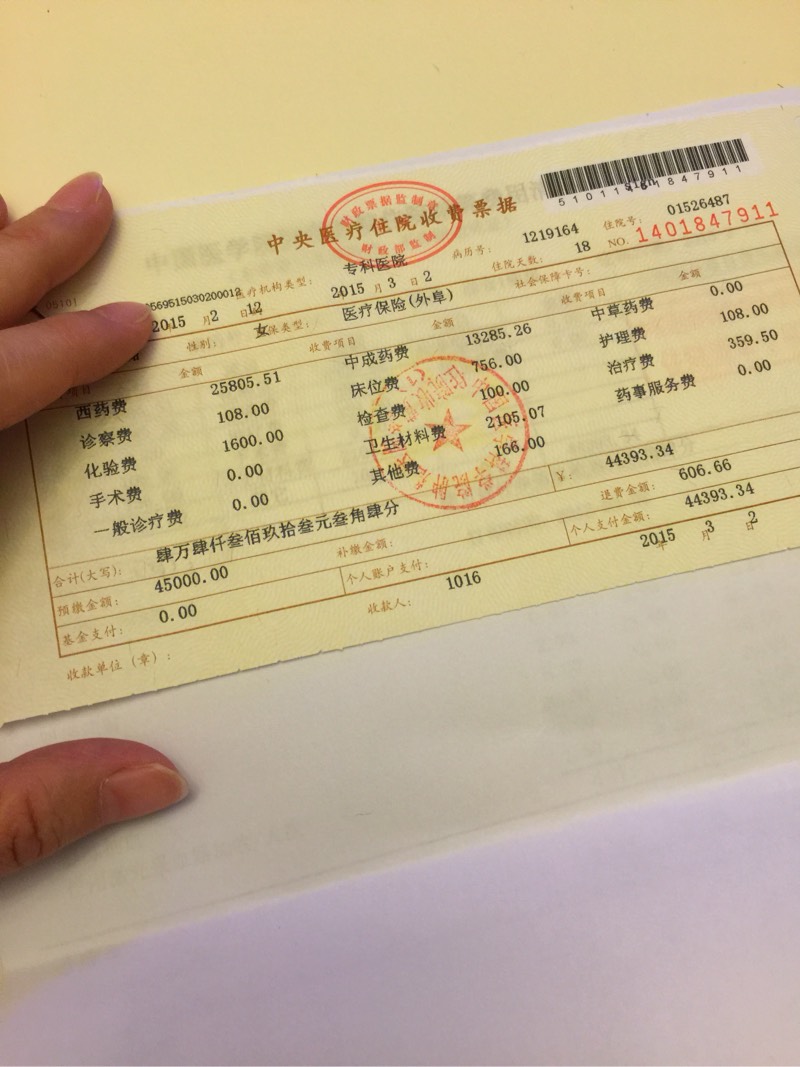 5101141401847911
中央医疗住院收费票据
财政票据监制章
财政部监制
NO. 1401847911
05101
569515030200012 机构类型: 专科医院 病历号: 1219164 住院号: 01526487
2015 月 2 日 12 2015 年 3 月 2 住院天数: 18
性别: 女 保类型: 医疗保险(外阜) 社会保障卡号:
项目 金额 收费项目 金额 收费项目 金额
西药费 25805.51 中成药费 13285.26 中草药费 0.00
诊察费 108.00 床位费 756.00 护理费 108.00
化验费 1600.00 检查费 100.00 治疗费 359.50
手术费 0.00 卫生材料费 2105.07 药事服务费 0.00
一般诊疗费 0.00 其他费 166.00
合计(大写): 肆万肆仟叁佰玖拾叁元叁角肆分 ¥: 44393.34
预缴金额: 45000.00 补缴金额: 退费金额: 606.66
基金支付: 0.00 个人账户支付: 个人支付金额: 44393.34
收款单位(章): 收款人: 1016 2015 年 3 月 2 日